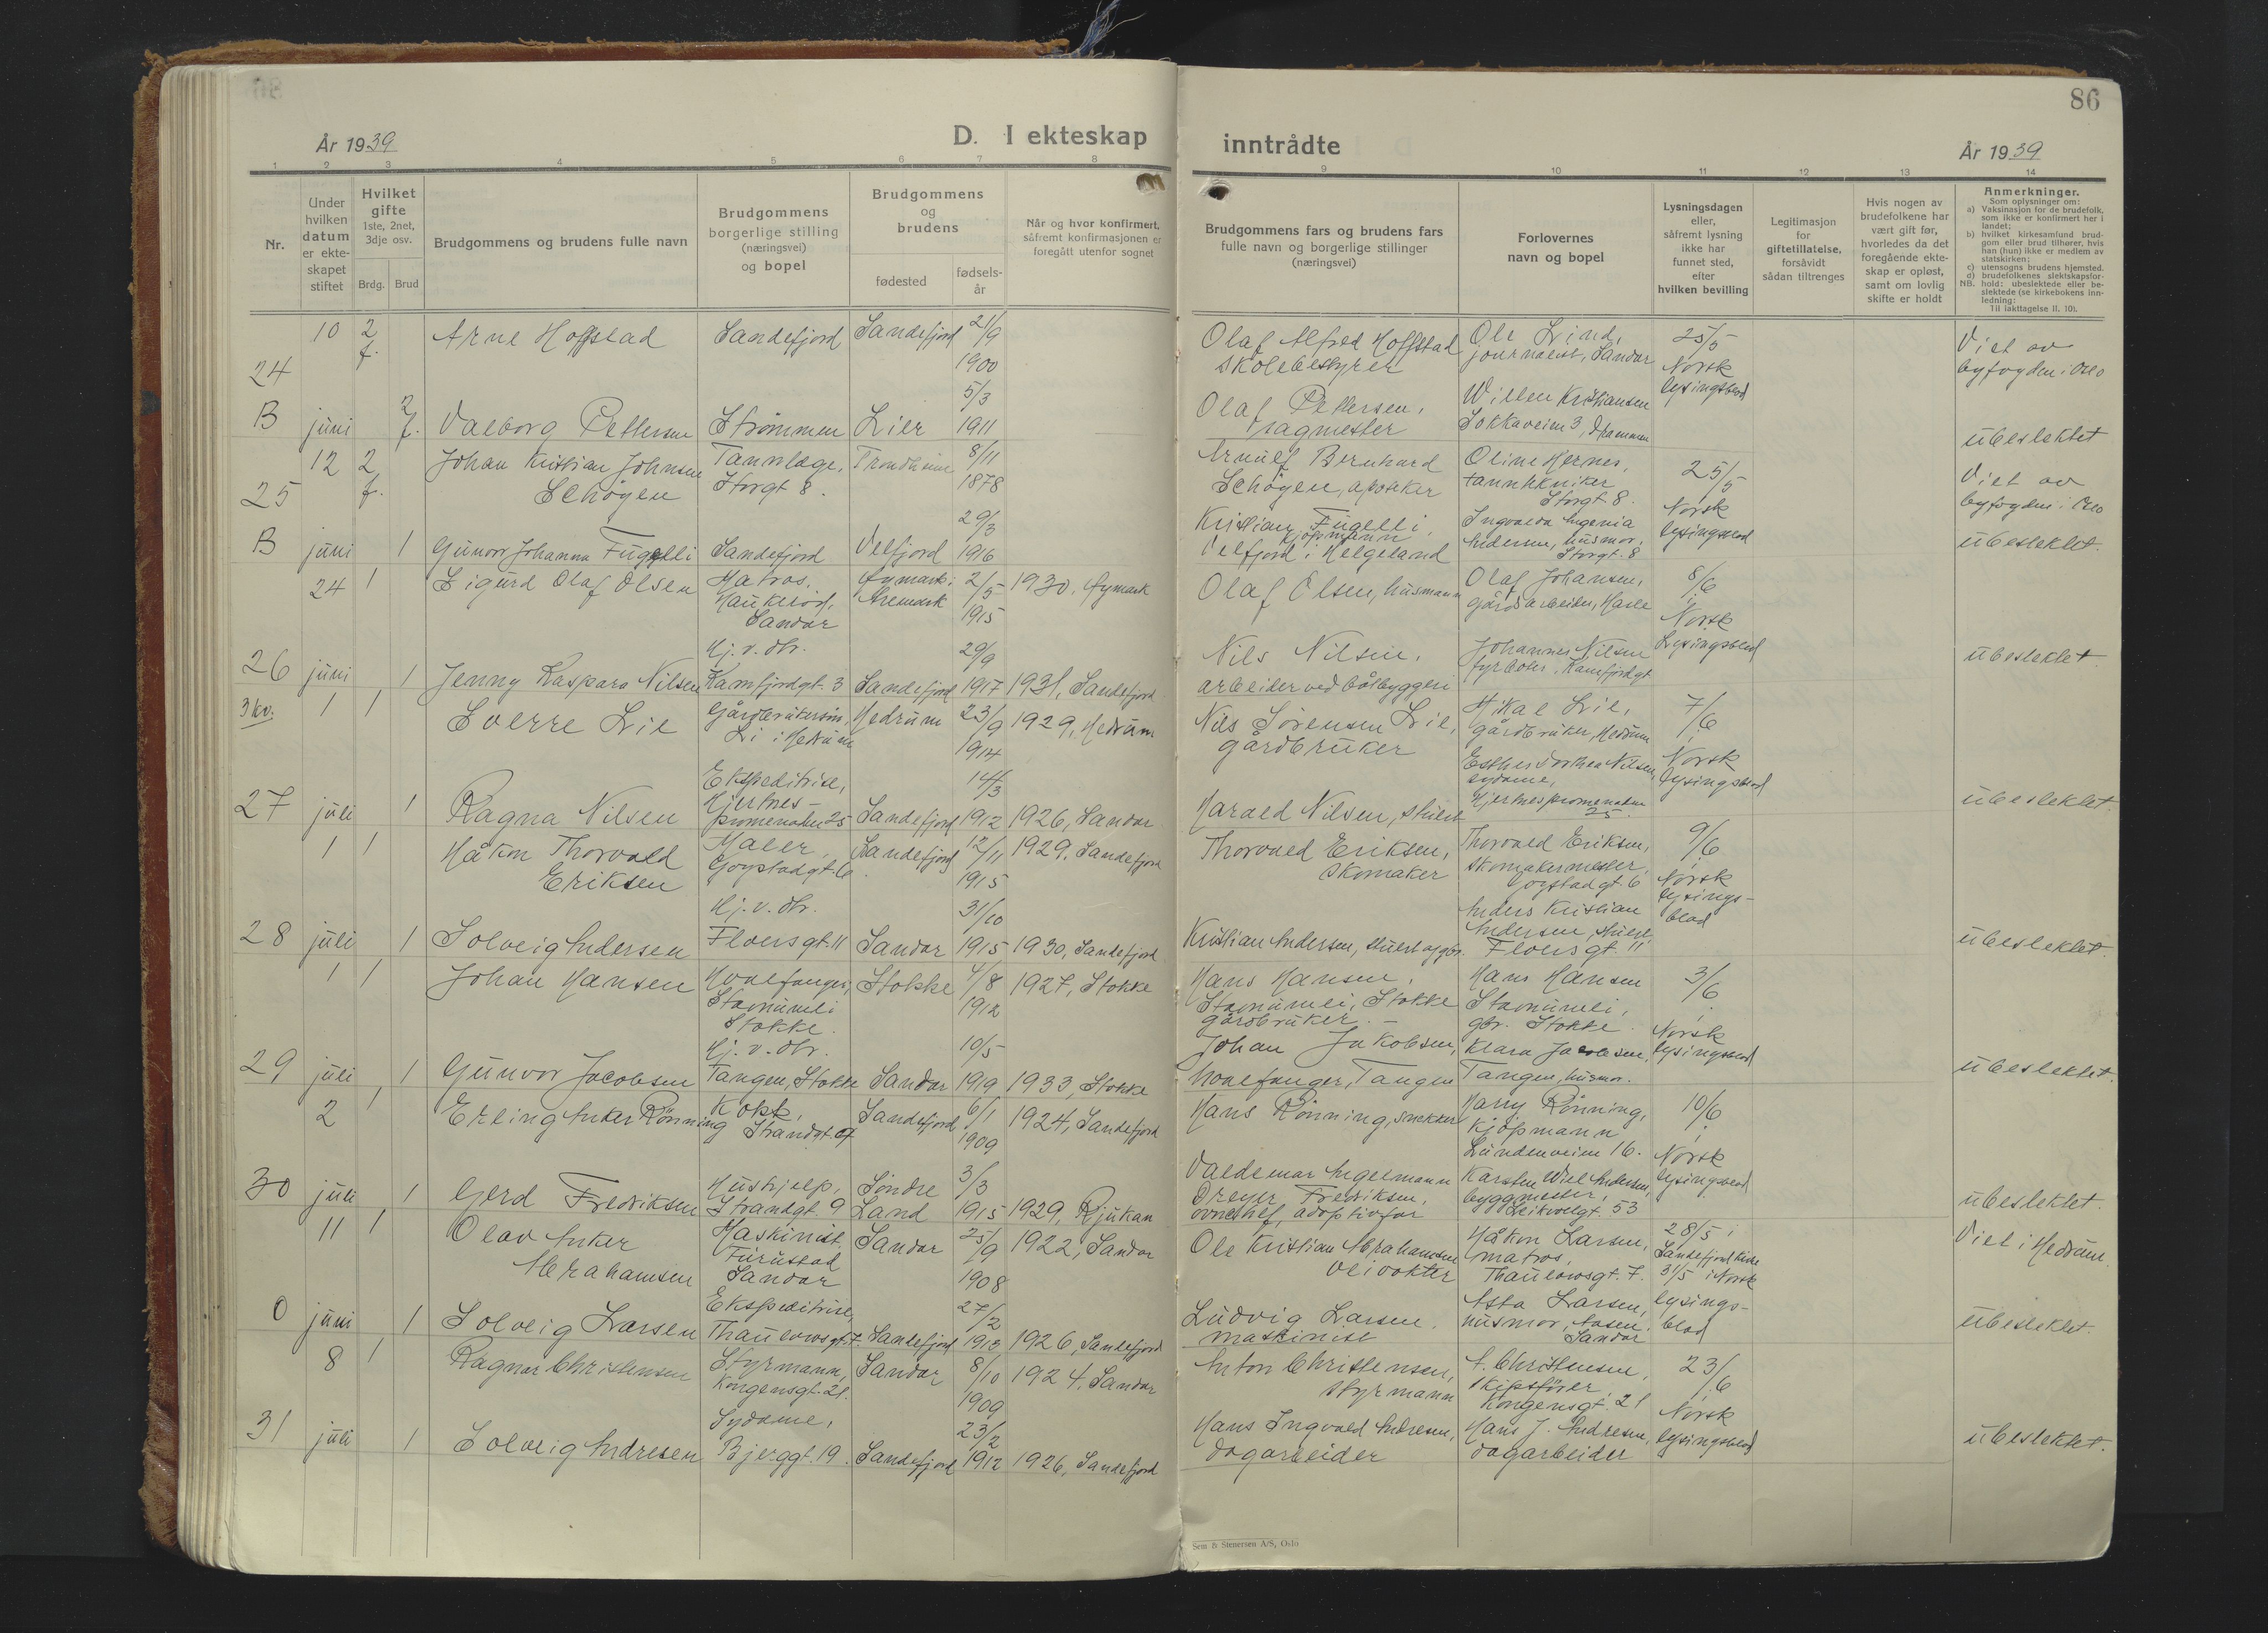 86
År 1939
D. I ekteskap inntrådte
År 1939
1 2 3 4 5 6 7 8 9 10 11 12 13 14
Nr.
Under
hvilken
datum
er ekte-
skapet
stiftet
Hvilket
gifte
1ste, 2net,
3dje osv.
Brdg. Brud
Brudgommens og brudens fulle navn
Brudgommens
borgerlige stilling
(næringsvei)
og bopel
Brudgommens
og
brudens
fødested
fødsels-
år
Når og hvor konfirmert,
såfremt konfirmasjonen er
foregått utenfor sognet
Brudgommens fars og brudens fars
fulle navn og borgerlige stillinger
(næringsvei)
Forlovernes
navn og bopel
Lysningsdagen
eller,
såfremt lysning
ikke har
funnet sted,
efter
hvilken bevilling
Legitimasjon
for
giftetillatelse,
forsåvidt
sådan tiltrenges
Hvis nogen av
brudefolkene har
vært gift før,
hvorledes da det
foregående ekte-
skap er opløst,
samt om lovlig
skifte er holdt
Anmerkninger.
Som oplysninger om:
a) Vaksinasjon for de brudefolk,
som ikke er konfirmert her i
landet;
b) hvilket kirkesamfund brud-
gom eller brud tilhører, hvis
han (hun) ikke er medlem av
statskirken;
c) utensogns brudens hjemsted.
d) brudefolkenes slektskapsfor-
hold: ubeslektede eller be-
slektede (se kirkebokens inn-
ledning:
NB.
Til iakttagelse II. 10).
24 B
10 juni
2 f.
Arne Hoffstad
Sandefjord
Sandefjord
21/9
1900
Olaf Alfred Hoffstad
skolebestyrer
Ole Lind,
journalist, Sandar
25/5
Norsk
lysingsblad
Viet av
byfogden i Oslo
2 f.
Valborg Pettersen
Strømmen
Lier
5/3
1911
Olaf Pettersen,
sagmester
Willem Kristiansen
3, Drammen
ubeslektet
25 B
12 juni
2 f.
Johan Kristian Johnsen
Schøyen
Tannlæge,
Storgt 8.
Trondheim
8/11
1878
Arnulf Bernhard
Schøyen, apoteker
Oline Hernes,
tanntekniker
Storgt. 8.
25/5
Norsk
lysingsblad
Viet av
byfogden i Oslo
1
Gunvor Johanna Fugelli
Sandefjord
Velfjord
29/3
1916
Kristian Fugelli,
kjøpmann
Velfjord i Helgeland
Ingvalda
Andersen, husmor,
Storgt. 8
ubeslektet.
26
24 juni
1
Sigurd Olaf Olsen
Matros,
Haukerød,
Sandar
Øymark i
Aremark
2/5
1915
1930, Øymark
Olaf Olsen, husmann
Olaf Johansen,
gårdsarbeider,
8/6
i
Norsk
Lysingsblad
1
Jenny Kaspara Nilsen
Hj. v. dtr.
Kamfjordgt. 3
Sandefjord
29/9
1917
1931, Sandefjord
Nils Nilsen,
arbeider ved båtbyggeri
Johannes Nilsen
fyrbøter, Kamfjordgt
ubeslektet.
3 kv.
27
1 juli
1
Sverre Lie
Gårdbrukersøn,
Li i Hedrum
Hedrum
23/9
1914
1929, Hedrum
Nils Sørensen Lie,
gårdbruker
Mikal Lie,
gårdbruker, Hedrum
7/6
i
Norsk
lysingsblad
1
Ragna Nilsen
Ekspeditrise,
Hjertnes-
promenaden 25
Sandefjord
14/3
1912
1926, Sandar
Harald Nilsen, stuert
Esther Dorthea Nilsen
sydame,
Hjertnespromenaden
25.
ubeslektet.
28
1 juli
1
Håkon Thorvald
Eriksen
Maler,
Gogstadgt. 6
Sandefjord
12/11
1915
1929, Sandefjord
Thorvald Eriksen,
skomaker
Thorvald Eriksen,
skomakermester,
Gogstadgt. 6
9/6
i
Norsk
lysings-
blad
1
Solveig Andersen
Hj. v. dtr.
Floersgt. 11
Sandar
31/10
1915
1930, Sandefjord
Kristian Andersen, stuert
Anders Kristian
Andersen, stuert,
Floersgt. 11
ubeslektet.
29
1 juli
1
Johan Hansen
Hvalfanger,
Stavnumli
Stokke.
Stokke
4/8
1912
1927, Stokke
Hans Hansen,
Stavnumli, Stokke
gårdbruker.
Hans Hansen
Stavnumli,
gbr. Stokke.
3/6
i
Norsk
lysingsblad
1
Gunvor Jacobsen
Hj. v. dtr.
Tangen, Stokke
Sandar
10/5
1919
1933, Stokke
Johan Jakobsen,
hvalfanger, Tangen
Klara Jacobsen,
Tangen, husmor.
ubeslektet.
30
2 juli
1
Erling Anker Rønning
Kokk,
Strandgt. 9
Sandefjord
6/1
1909
1924, Sandefjord
Hans Rønning, snekker
Harry Rønning,
kjøpmann
Lundenveien 16.
10/6
i
Norsk
lysingsblad
1
Gerd Fredriksen
Hushjelp,
Strandgt. 9
Søndre
Land
3/3
1915
1929, Rjukan
Valdemar Angelmann
Dreyer Fredriksen,
adoptivfar
Karsten Wiel Andersen,
byggmester,
Leikvollgt. 53
ubeslektet.
0
11 juni
1
Olav Anker
Abrahamsen
Maskinist
Furustad
Sandar
Sandar
25/9
1908
1922, Sandar
Ole Kristian Abrahamsen
Håkon Larsen,
matros,
Thaulowsgt. 7.
28/5 i
Sandefjord kirke
31/5 i Norsk
lysings-
blad
Viet i Hedrum.
1
Solveig Larsen
Ekspeditrise,
Thaulowsgt. 7.
Sandefjord
27/2
1913
1926, Sandefjord
Ludvig Larsen,
maskinist
Asta Larsen,
husmor, Åsen,
Sandar
ubeslektet.
31
8 juli
1
Ragnar Christensen
Styrmann,
Kongensgt. 21.
Sandar
8/10
1909
1924, Sandar
Anton Christensen,
styrmann
A. Christensen,
skipsfører,
Kongensgt. 21
23/6
i
Norsk
lysingsblad
1
Solveig Andresen
Sydame,
Bjerggt. 19.
Sandefjord
23/2
1912
1926, Sandefjord
Hans Ingvald Andresen,
dagarbeider
Hans J. Andresen,
dagarbeider
ubeslektet.
Sem & Stenersen A/S, Oslo